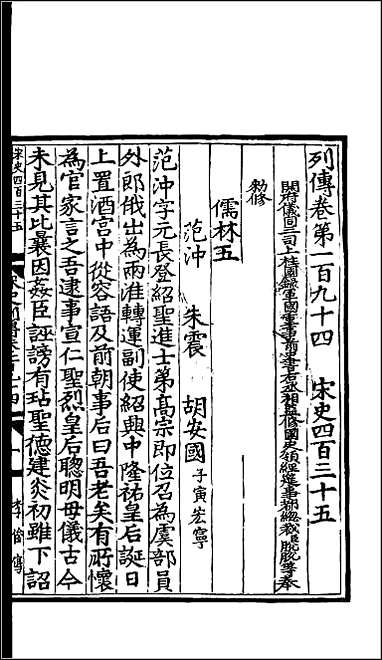 列傳卷第一百九十四　宋史四百三十五
開府儀同三司上柱國錄軍國重事前中書右丞相監修國史領經筵事都總裁脫脫等奉
勑修
儒林五
范沖　朱震　胡安國 子寅宏寧
范沖字元長登紹聖進士第高宗即位召為虞部員
外郎俄出為兩淮轉運副使紹興中隆祐皇后誕日
上置酒宫中從容語及前朝事后曰吾老矣有所懷
為官家言之吾逮事宣仁聖烈皇后聰明母儀古今
未見其比曩因姦臣誣謗有玷聖德建炎初雖下詔
宋史四百三十五